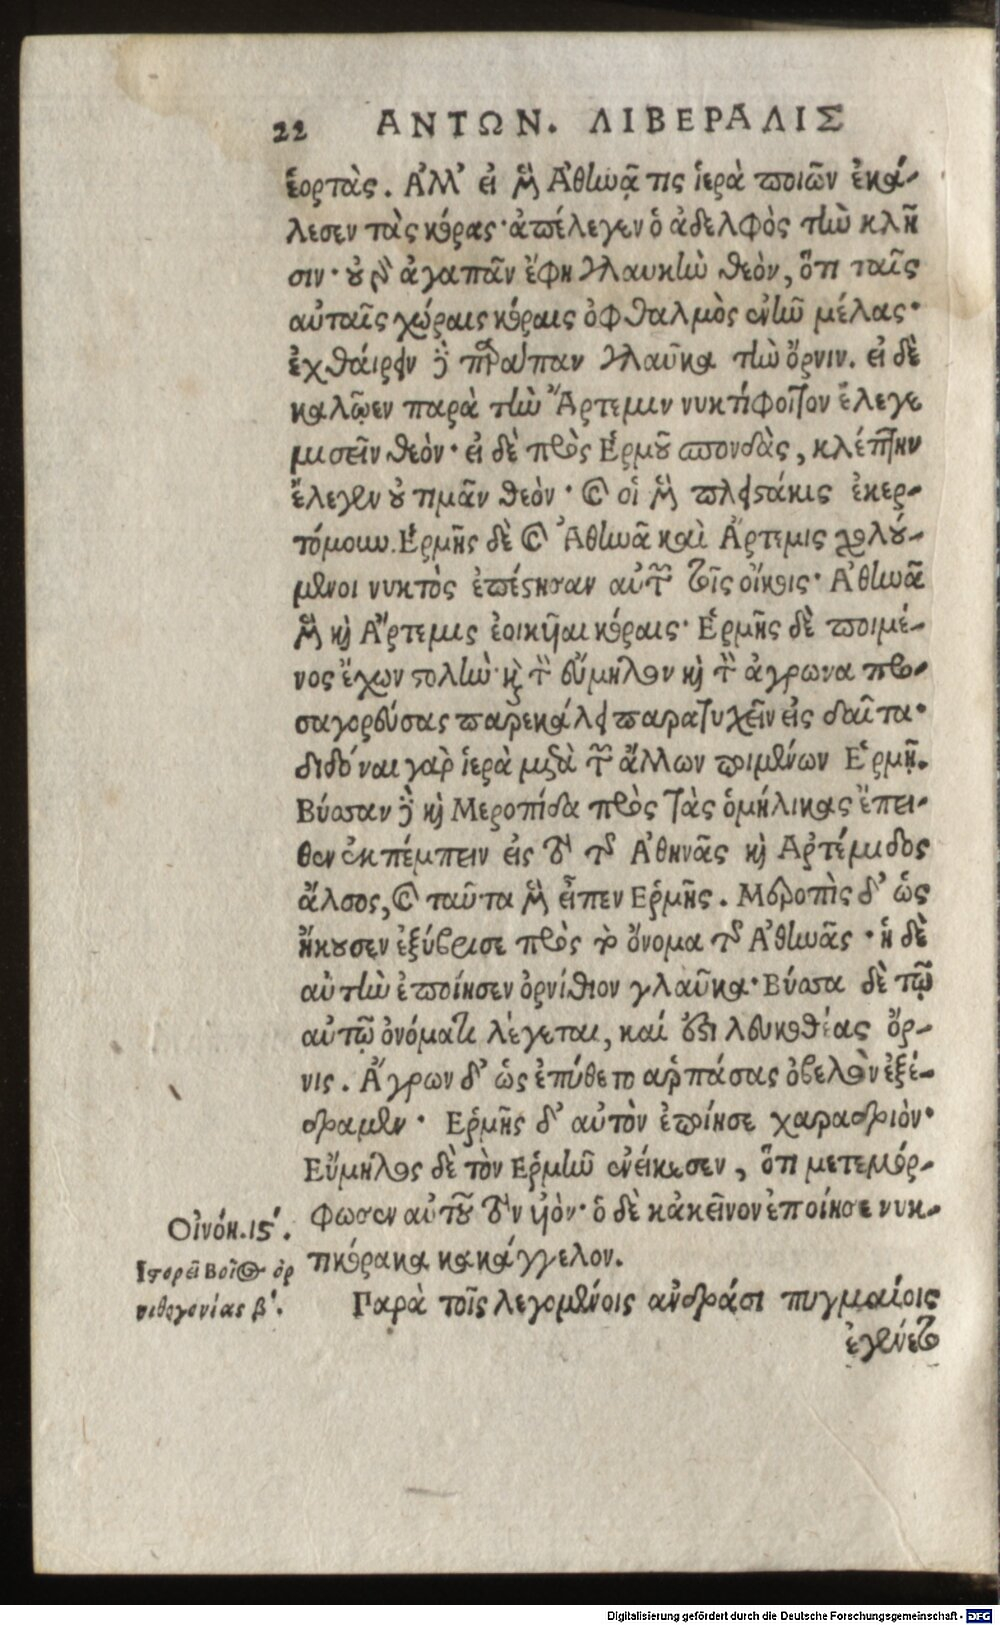 22 ΑΝΤΩΝ. ΛΙΒΕΡΑΛΙΣ
ἑορτὰς. Ἀλλ' εἰ μὲν Ἀθηνᾷ τις ἱερὰ ποιῶν ἐκά-
λεσεν τὰς κόρας· ἀπέλεγεν ὁ ἀδελφὸς τὴν κλῆ
σιν· οὐ γὰρ ἀγαπᾶν ἔφη γλαυκὴν θεὸν, ὅτι ταῖς
αὐταῖς χώραις κόραις ὀφθαλμὸς ἐνῆν μέλας·
ἐχθαίρειν δὲ παράπαν γλαῦκα τὴν ὄρνιν. εἰ δὲ
καλῷεν παρὰ τὴν Ἄρτεμιν νυκτίφοιτον ἔλεγε
μισεῖν θεὸν· εἰ δὲ πρὸς Ἑρμοῦ σπονδὰς, κλέπτην
ἔλεγεν οὐ τιμᾶν θεὸν· καὶ οἱ μὲν πλειστάκις ἐκερ-
τόμουν. Ἑρμῆς δὲ καὶ Ἀθηνᾶ καὶ Ἄρτεμις χολού-
μενοι νυκτὸς ἐπέστησαν αὐτῶν τοῖς οἴκοις· Ἀθηνᾶ
μὲν καὶ Ἄρτεμις ἐοικυῖαι κόραις· Ἑρμῆς δὲ ποιμέ-
νος ἔχων στολὴν· καὶ τὸν εὔμηλον καὶ τὸν ἄγρωνα προ-
σαγορεύσας παρεκάλει παρατυχεῖν εἰς δαῖτα·
διδόναι γὰρ ἱερὰ μετὰ τῶν ἄλλων ποιμένων Ἑρμῇ.
Βύσσαν δὲ καὶ Μεροπίδα πρὸς τὰς ὁμήλικας ἔπει-
θεν ἐκπέμπειν εἰς τὸ τῆς Ἀθηνᾶς καὶ Ἀρτέμιδος
ἄλσος, καὶ ταῦτα μὲν εἶπεν Ἑρμῆς. Μεροπὶς δ' ὡς
ἤκουσεν ἐξύβρισε πρὸς τὸ ὄνομα τῆς Ἀθηνᾶς· ἡ δὲ
αὐτὴν ἐποίησεν ὀρνίθιον γλαῦκα· Βύσσα δὲ τῷ
αὐτῷ ὀνόματι λέγεται, καί ἐστι λευκοθέας ὄρ-
νις. Ἄγρων δ' ὡς ἐπύθετο ἁρπάσας ὀβελὸν ἐξέ-
δραμεν· Ἑρμῆς δ' αὐτὸν ἐποίησε χαραδριὸν·
Εὔμηλος δὲ τὸν Ἑρμῆν ἐνείκεσεν, ὅτι μετεμόρ-
φωσεν αὐτοῦ τὸν υἱὸν· ὁ δὲ κἀκεῖνον ἐποίησε νυκ-
τικόρακα κακάγγελον.
Οἰνόη. ιϛ'.
Ἱστορεῖ Βοῖος ὀρ
νιθογονίας β'.
Παρὰ τοῖς λεγομένοις ἀνδράσι πυγμαίοις
ἐγένετο